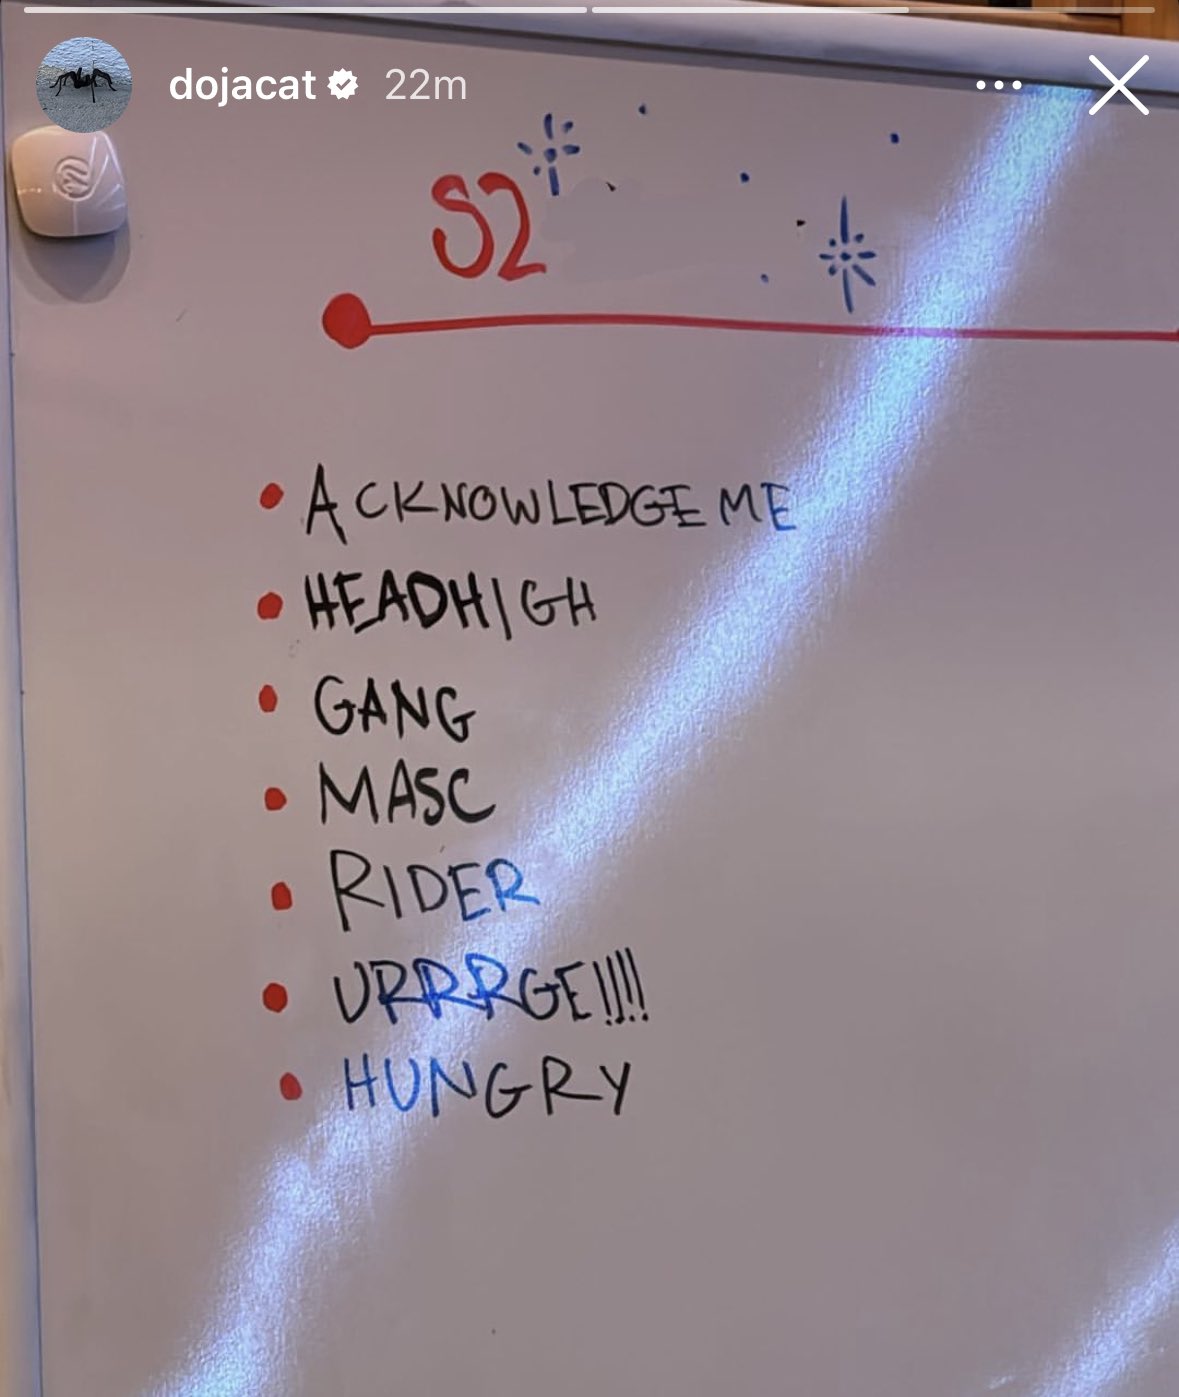 dojacat 22m
S2
• ACKNOWLEDGE ME
• HEADHIGH
• GANG
• MASC
• RIDER
• URRRGE!!!!
• HUNGRY